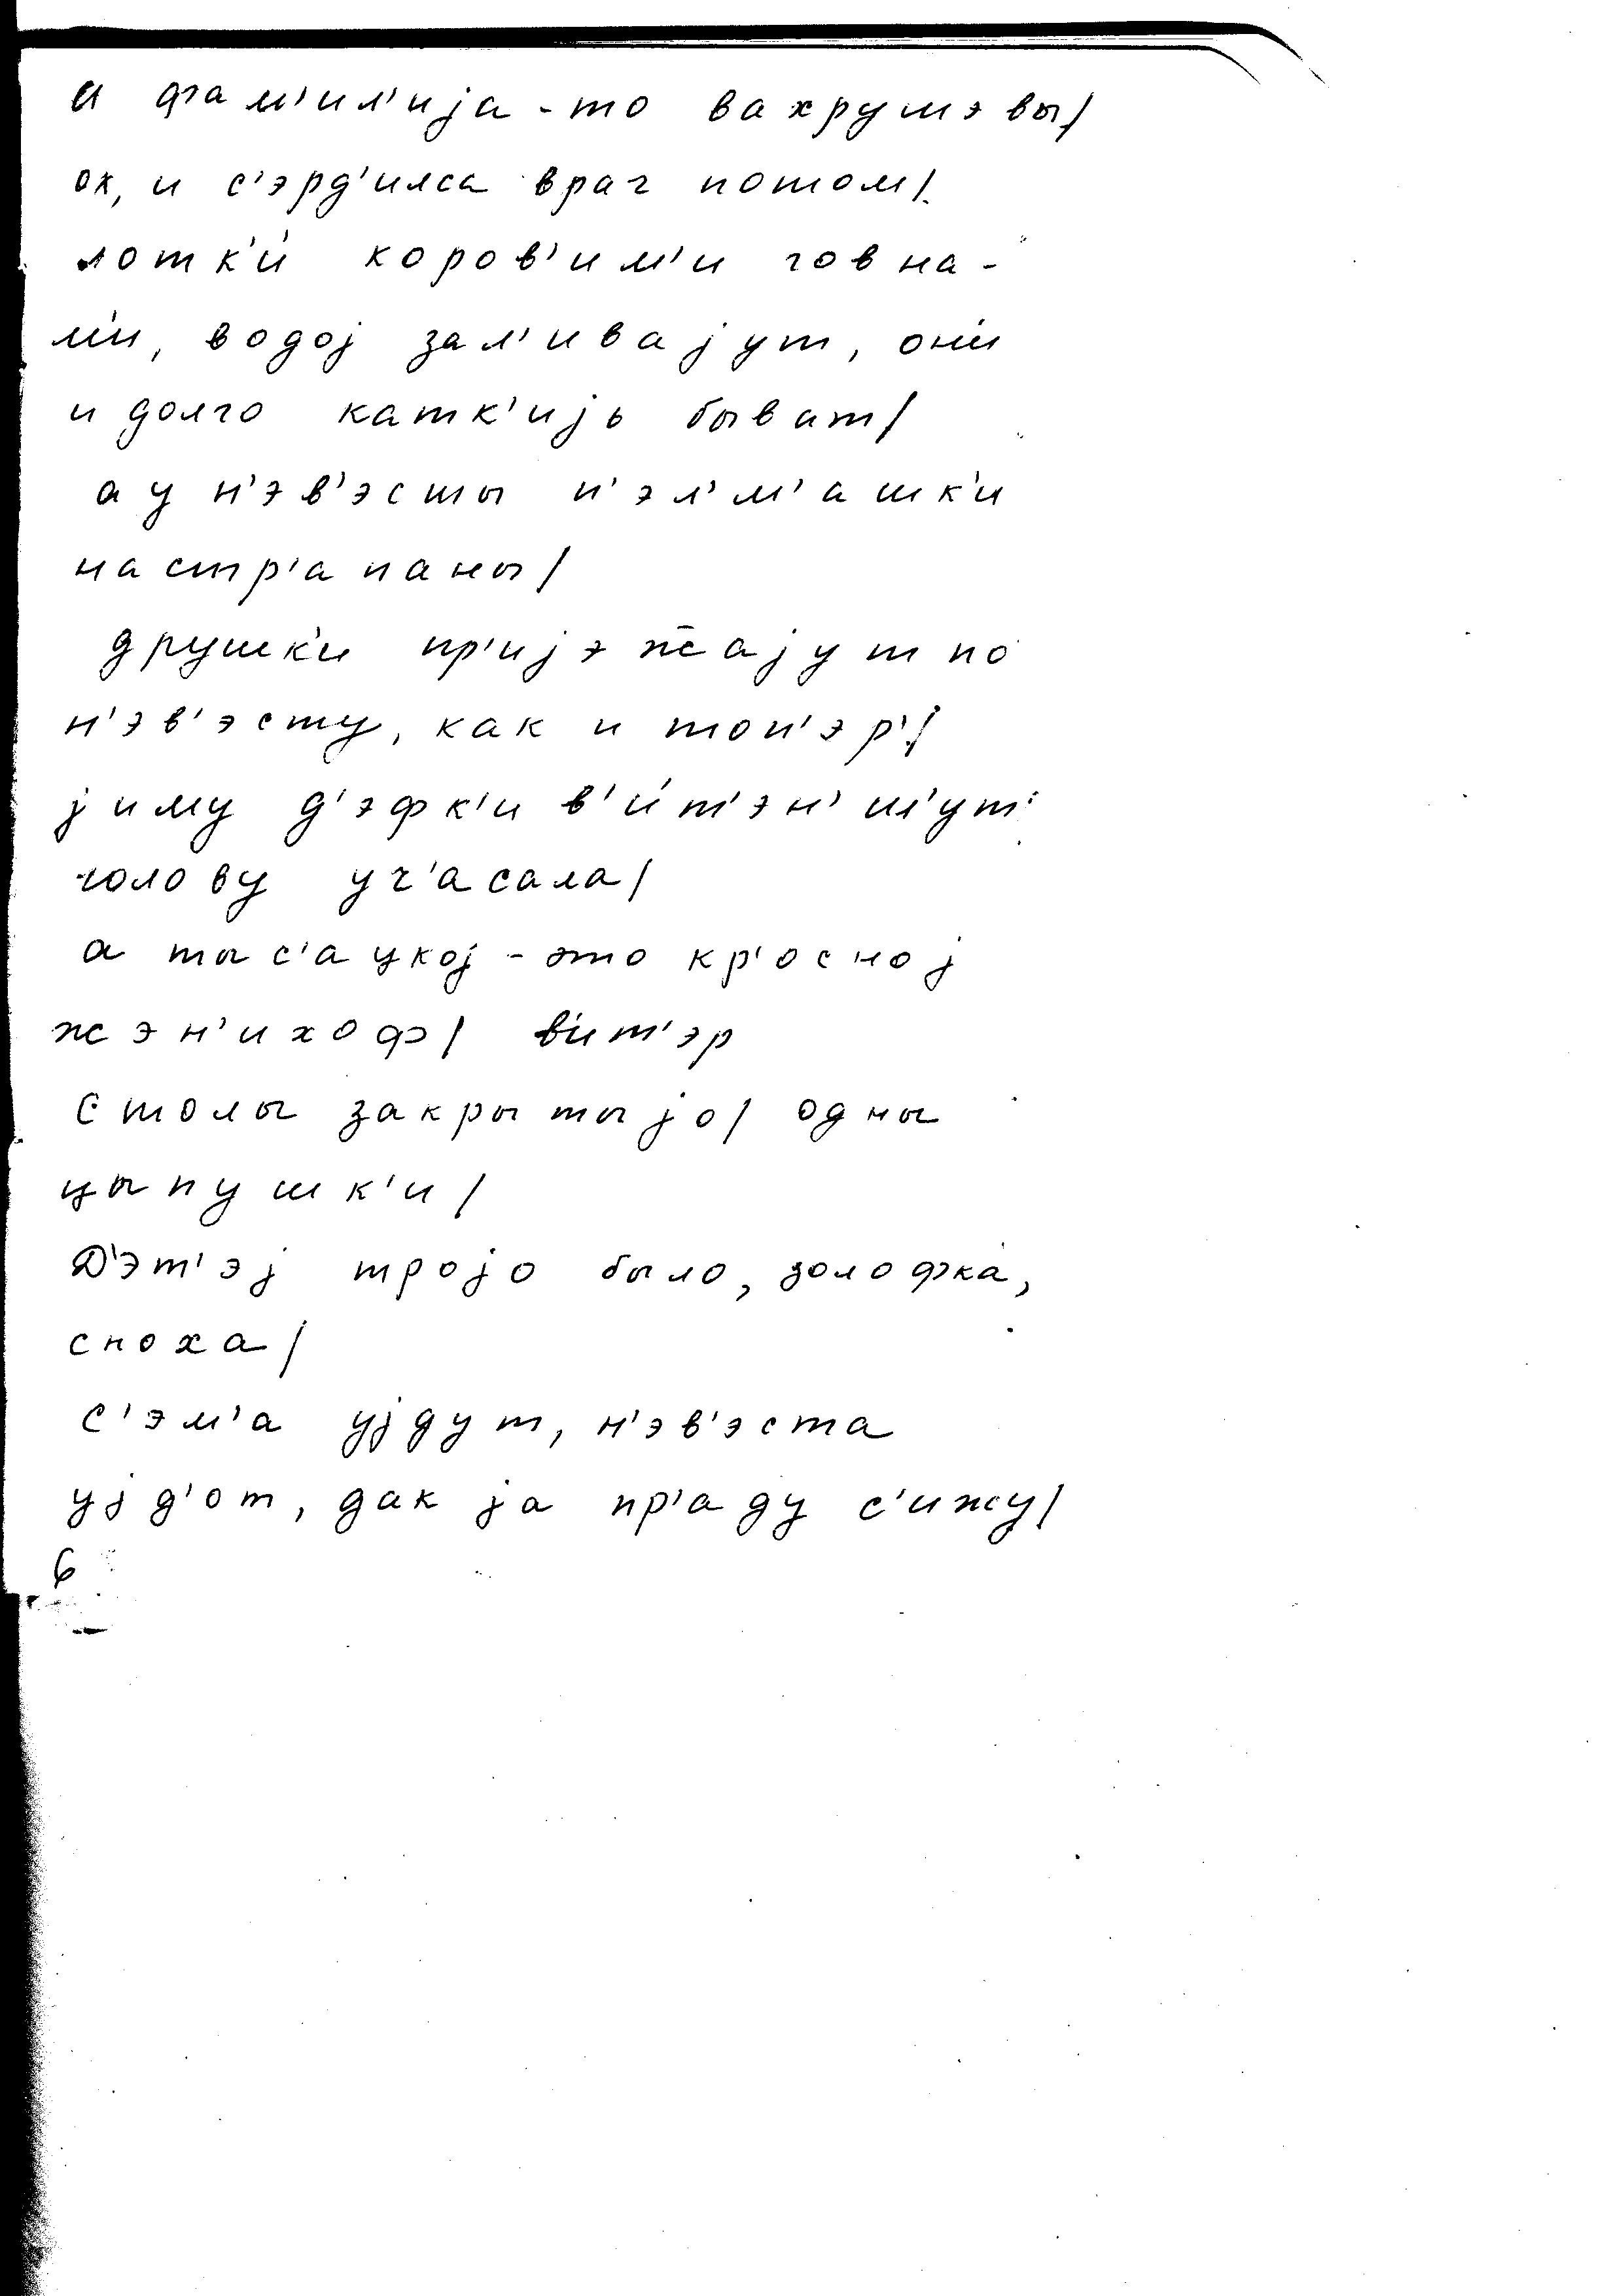 а фам'ил'ија-то вахрушэвы/
ох, и с'эрд'илса врач потом/.
лотк'и коров'им'и говна-
м'и, водој зал'ивајут, он'и
и долго катк'ијь быват/
а у н'эв'эсты п'эл'м'ашк'и
настр'апаны/
друшк'и пр'ијэж̄ајут по
н'эв'эсту, как и топ'эр'/
јиму д'эфк'и в'ит'эн' ш'ут
голову уч'асала/
а тыс'ацкој-это кр'осной
жэн'ихоф/ в'ит'эр
столы закрытыјо/ одны
цыпушк'и/
Д'эт'эј тројо было, золофка,
сноха/
с'эм'а ујдут, н'эв'эста
ујд'от, дак ја пр'аду с'ижу/
6